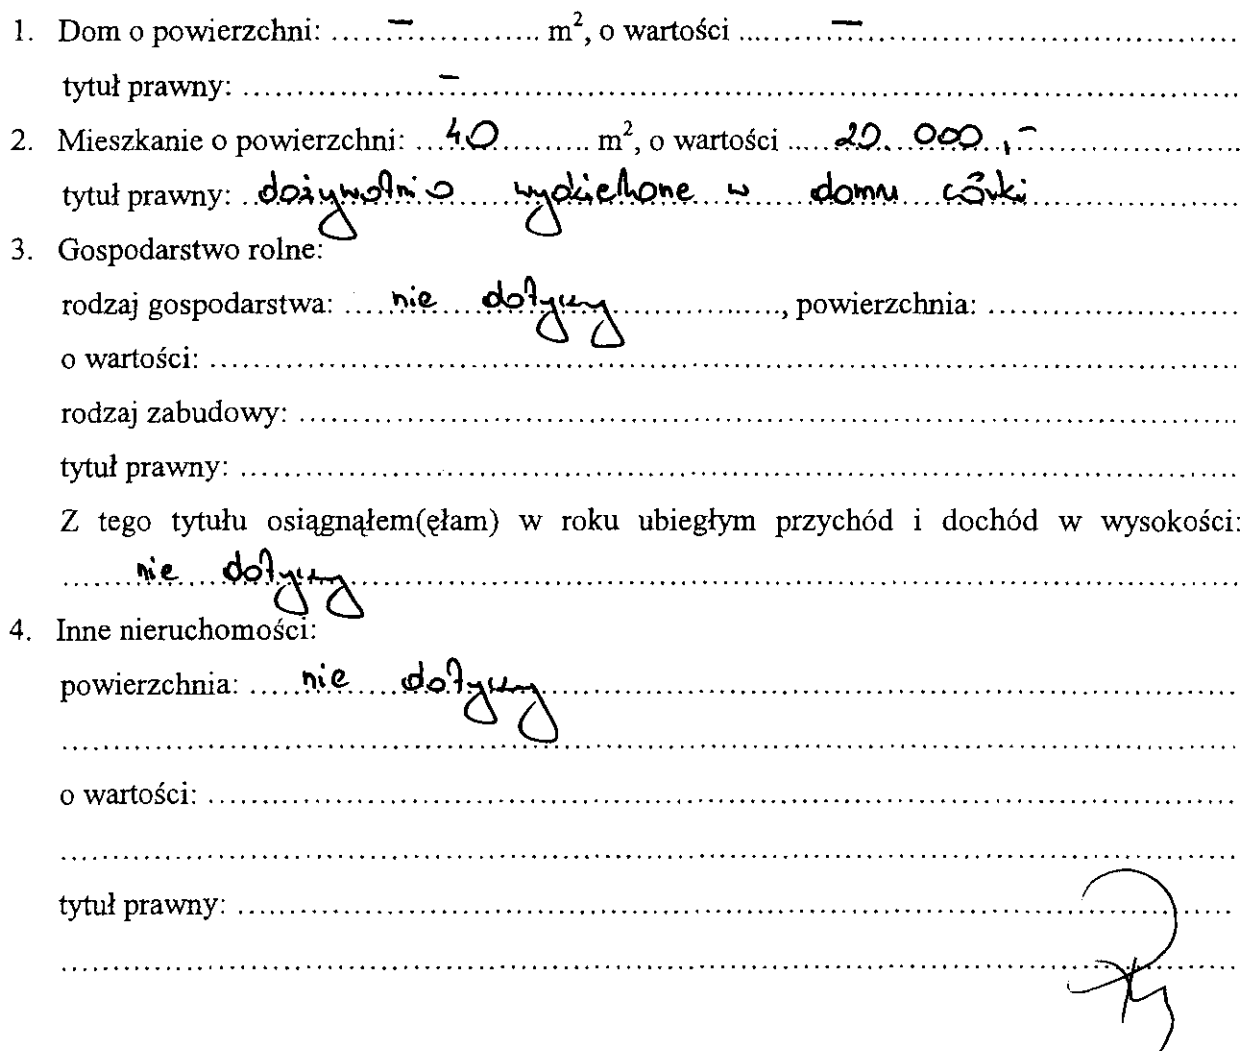 1. Dom o powierzchni: ......–............. m², o wartości ............–..........................................
tytuł prawny: ......................–..............................................................................
2. Mieszkanie o powierzchni: ...40.......... m², o wartości ..... 20. 000,-.....................
tytuł prawny: ..dożywotnio wydzielone w domu córki..........................
3. Gospodarstwo rolne:
rodzaj gospodarstwa: ....nie dotyczy..................., powierzchnia: .......................
o wartości: ....................................................................................................
rodzaj zabudowy: ...........................................................................................
tytuł prawny: .................................................................................................
Z tego tytułu osiągnąłem(ęłam) w roku ubiegłym przychód i dochód w wysokości:
.........nie dotyczy.........................................................................................
4. Inne nieruchomości:
powierzchnia: .....nie dotyczy.....................................................................
.....................................................................................................................
o wartości: ....................................................................................................
.....................................................................................................................
tytuł prawny: .................................................................................................
.....................................................................................................................